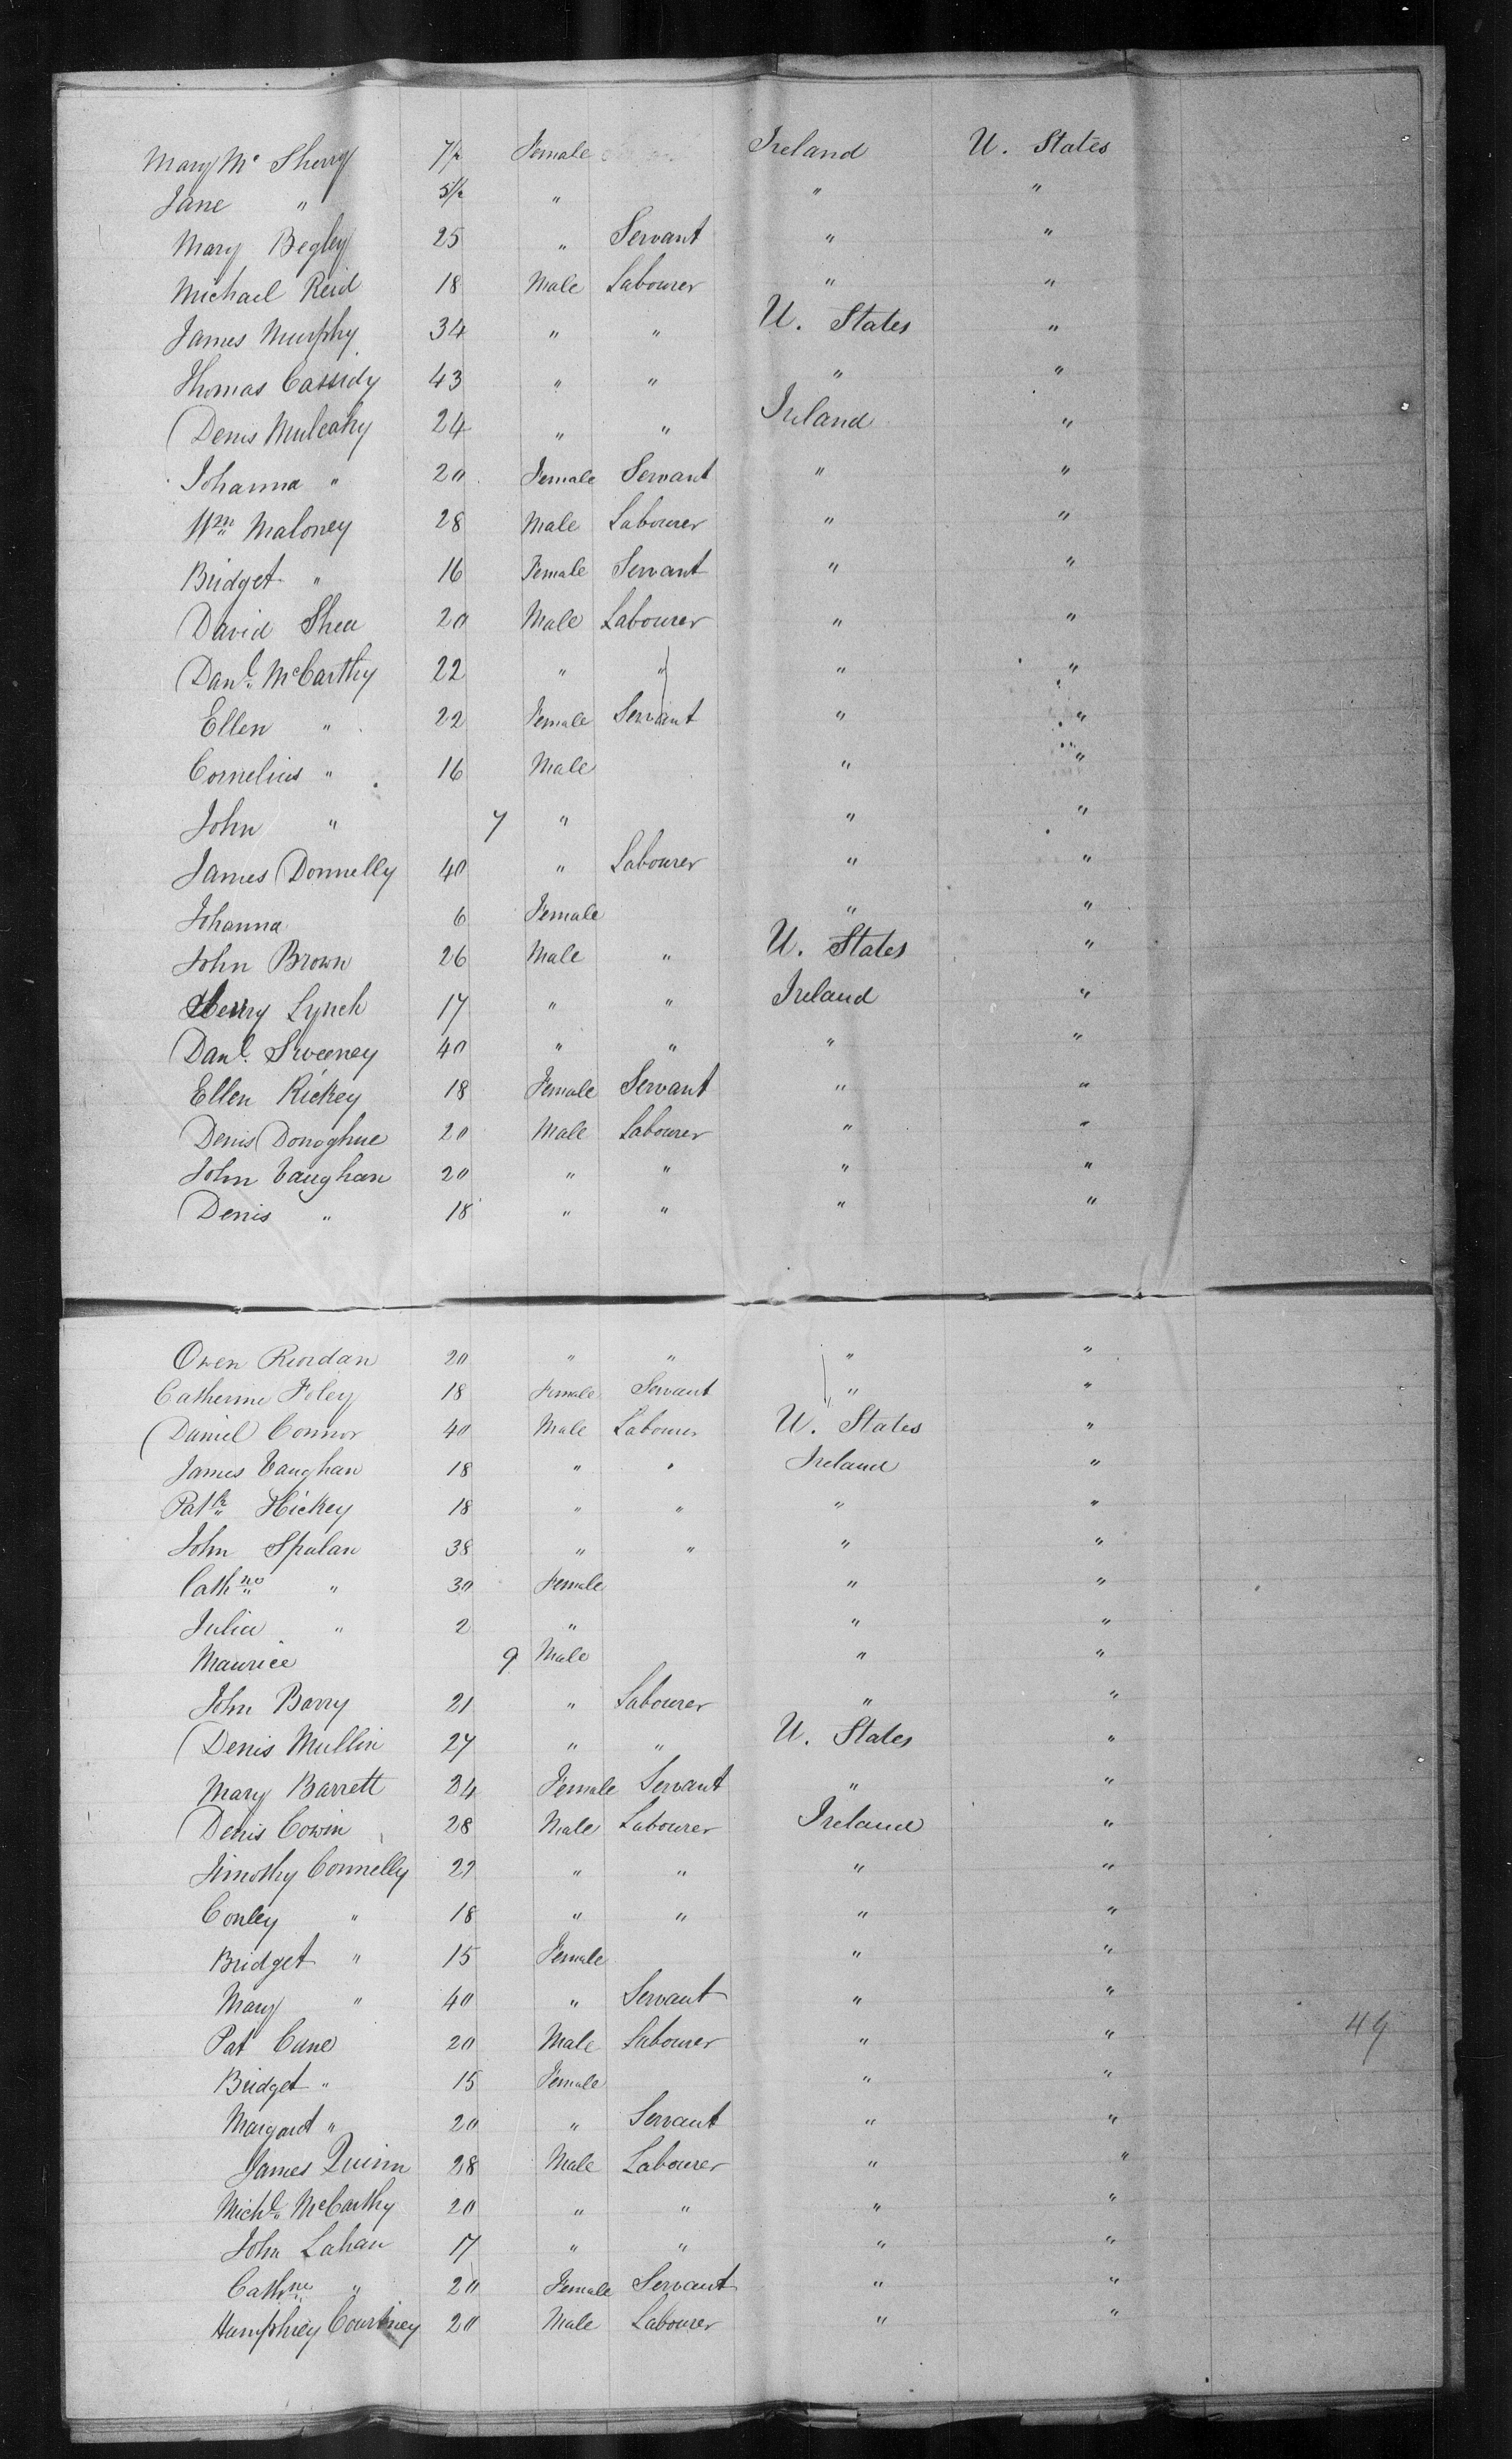 Mary Mc Sherry 7½ Female Ireland U. States
Jane " 5½ " " "
Mary Begley 25 " Servant " "
Michael Reid 18 Male Labourer " "
James Murphy 34 " " U. States "
Thomas Cassidy 43 " " " "
Denis Mulcahy 24 " " Ireland "
Johanna " 20 Female Servant " "
Wm Maloney 28 Male Labourer " "
Bridget " 16 Female Servant " "
David Shea 20 Male Labourer " "
Danl. McCarthy 22 " " " "
Ellen " 22 Female Servant " "
Cornelius " 16 Male " "
John " 7 " " "
James Donnelly 40 " Labourer " "
Johanna 6 Female " "
John Brown 26 Male " U. States "
Henry Lynch 17 " " Ireland "
Danl. Sweeney 40 " " " "
Ellen Rickey 18 Female Servant " "
Denis Donoghue 20 Male Labourer " "
John Vaughan 20 " " " "
Denis " 18 " " " "
Owen Riordan 20 " " " "
Catherine Foley 18 Female Servant " "
Daniel Connor 40 Male Labourer U. States "
James Vaughan 18 " " Ireland "
Patk Hickey 18 " " " "
John Spalan 38 " " " "
Cathne " 30 Female " "
Julia " 2 " " "
Maurice 9 Male " "
John Barry 21 " Labourer " "
Denis Mullin 27 " " U. States "
Mary Barrett 24 Female Servant " "
Denis Cowin 28 Male Labourer Ireland "
Timothy Connelly 27 " " " "
Conley " 18 " " " "
Bridget " 15 Female " "
Mary " 40 " Servant " "
Pat Cane 20 Male Labourer " "
49
Bridget " 15 Female " "
Margaret " 20 " Servant " "
James Quinn 28 Male Labourer " "
Michl. McCarthy 20 " " " "
John Lahan 17 " " " "
Cathne " 20 Female Servant " "
Humphrey Courtney 20 Male Labourer " "